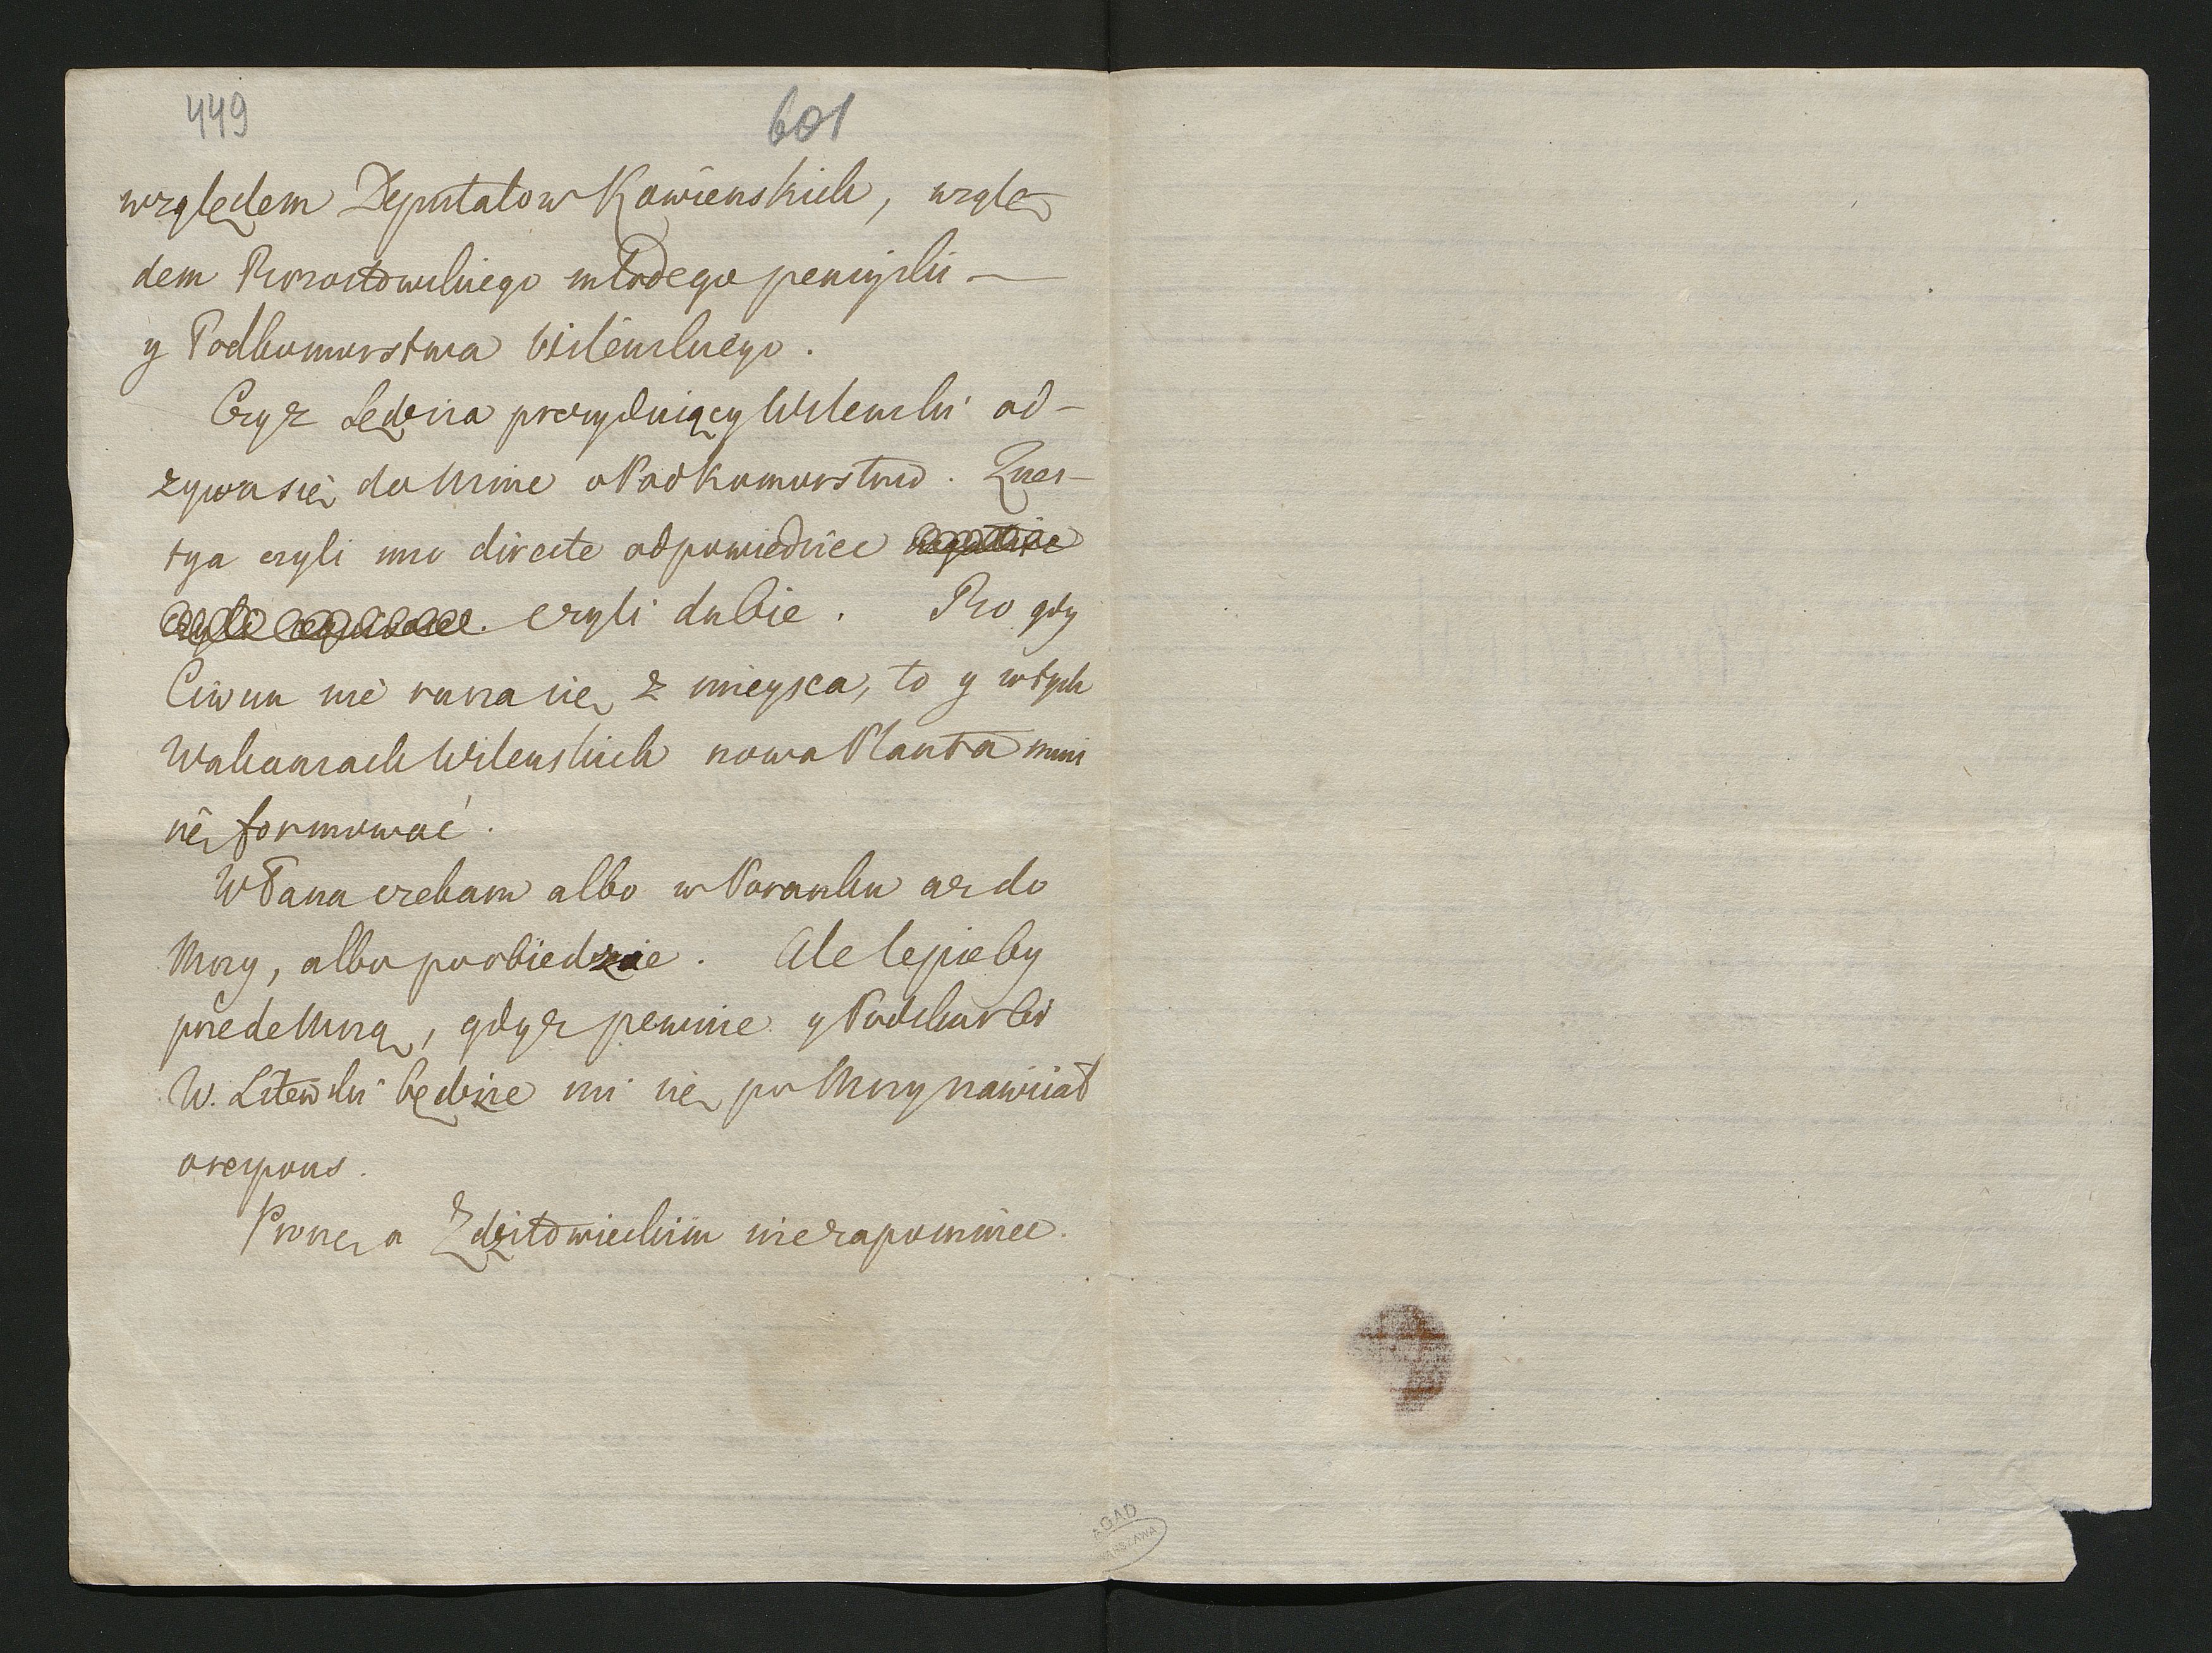 449 601
względem Deputatow Kowienskich, wzglę
dem Brzostowskiego młodego pensyiki —
y Podkomorstwa Wilenskiego.
Czyz Sędzia prezyduiący Wilenski od-
zywa się do Mnie o Podkomorstwo. Ques-
tya czyli mu directe odpowiedziec negative
czyli equivoce. czyli dubie. Bo gdy
Ciwun nie rusza się z mieysca, to y w tych
Wakansach Wilenskich nowa Planta musi
się formować.
W Pana czekam albo w Poranku az do
Mszy, albo po obiedzie. Ale lepie by
przede Mszą, gdyz pewnie y Podskarbi
W. Litewski będzie mi się po Mszy nawiiał
o respons.
Proszę o Zdzitowieckim nie zapomniec.
AGAD
WARSZAWA